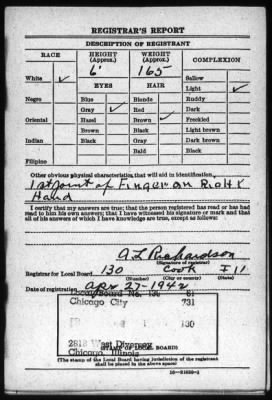 REGISTRAR'S REPORT
DESCRIPTION OF REGISTRANT
RACE HEIGHT (Approx.) WEIGHT (Approx.) COMPLEXION
6' 165
White ✓ Sallow
EYES HAIR Light ✓
Negro Blue Blonde Ruddy
Gray ✓ Red Dark
Oriental Hazel Brown ✓ Freckled
Brown Black Light brown
Indian Black Gray Dark brown
Bald Black
Filipino
Other obvious physical characteristics that will aid in identification
1st point of Finger on Right
Hand
I certify that my answers are true; that the person registered has read or has had
read to him his own answers; that I have witnessed his signature or mark and that
all of his answers of which I have knowledge are true, except as follows:
A L Richardson
(Signature of registrar)
Registrar for Local Board 130 Cook Ill
(Number) (City or county) (State)
Date of registration Apr 27-1942
Local Board No. 130 81
Chicago City 731
130
2813 West Diversey
Chicago, Illinois
(STAMP OF LOCAL BOARD)
(The stamp of the Local Board having jurisdiction of the registrant
shall be placed in the above space)